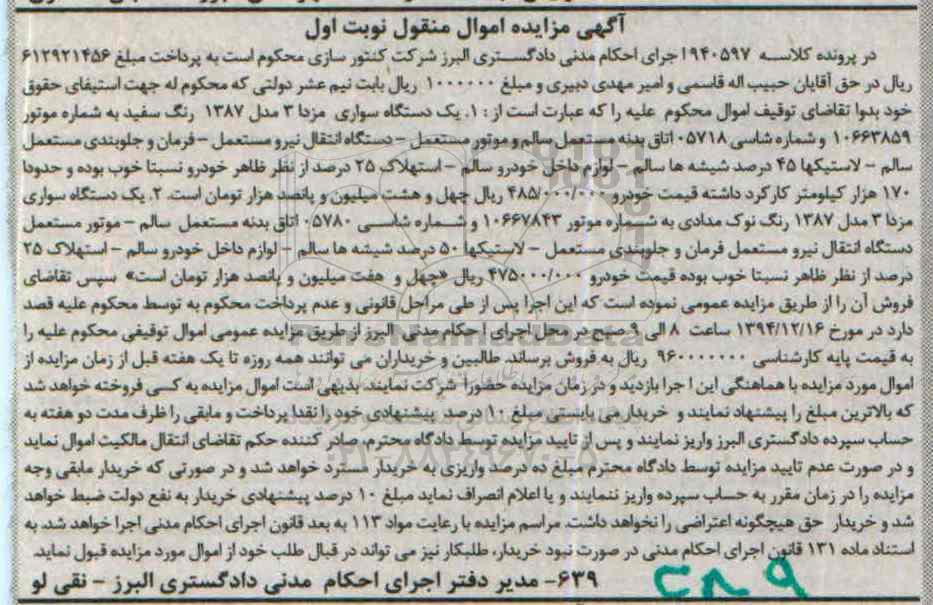 آگهی مزایده اموال منقول نوبت اول
در پرونده کلاسه ۹۴۰۵۹۷ اجرای احکام مدنی دادگستری البرز شرکت کنتور سازی محکوم است به پرداخت مبلغ ۶۱۲۹۲۱۴۵۶
ریال در حق آقایان حبیب اله قاسمی و امیر مهدی دبیری و مبلغ ۱۰۰۰۰۰۰ ریال بابت نیم عشر دولتی که محکوم له جهت استیفای حقوق
خود بدوا تقاضای توقیف اموال محکوم علیه را که عبارت است از : ۱. یک دستگاه سواری مزدا ۳ مدل ۱۳۸۷ رنگ سفید به شماره موتور
۱۰۶۶۳۸۵۹ و شماره شاسی ۰۵۷۱۸ اتاق بدنه مستعمل سالم و موتور مستعمل - دستگاه انتقال نیرو مستعمل - فرمان و جلوبندی مستعمل
سالم - لاستیکها ۴۵ درصد شیشه ها سالم - لوازم داخل خودرو سالم - استهلاک ۲۵ درصد از نظر ظاهر خودرو نسبتا خوب بوده و حدودا
۱۷۰ هزار کیلومتر کارکرد داشته قیمت خودرو ۴۸۵/۰۰۰/۰۰۰ ریال چهل و هشت میلیون و پانصد هزار تومان است. ۲. یک دستگاه سواری
مزدا ۳ مدل ۱۳۸۷ رنگ نوک مدادی به شماره موتور ۱۰۶۶۷۸۴۳ و شماره شاسی ۰۵۷۸۰ اتاق بدنه مستعمل سالم - موتور مستعمل
دستگاه انتقال نیرو مستعمل فرمان و جلوبندی مستعمل - لاستیکها ۵۰ درصد شیشه ها سالم - لوازم داخل خودرو سالم - استهلاک ۲۵
درصد از نظر ظاهر نسبتا خوب بوده قیمت خودرو ۴۷۵۰۰۰/۰۰۰ ریال «چهل و هفت میلیون و پانصد هزار تومان است» سپس تقاضای
فروش آن را از طریق مزایده عمومی نموده است که این اجرا پس از طی مراحل قانونی و عدم پرداخت محکوم به توسط محکوم علیه قصد
دارد در مورخ ۱۳۹۴/۱۲/۱۶ ساعت ۸ الی ۹ صبح در محل اجرای احکام مدنی البرز از طریق مزایده عمومی اموال توقیفی محکوم علیه را
به قیمت پایه کارشناسی ۹۶۰۰۰۰۰۰۰ ریال به فروش برساند. طالبین و خریداران می توانند همه روزه تا یک هفته قبل از زمان مزایده از
اموال مورد مزایده با هماهنگی این اجرا بازدید و در زمان مزایده حضورا شرکت نمایند. بدیهی است اموال مزایده به کسی فروخته خواهد شد
که بالاترین مبلغ را پیشنهاد نمایند و خریدار می بایستی مبلغ ۱۰ درصد پیشنهادی خود را نقدا پرداخت و مابقی را ظرف مدت دو هفته به
حساب سپرده دادگستری البرز واریز نمایند و پس از تایید مزایده توسط دادگاه محترم، صادر کننده حکم تقاضای انتقال مالکیت اموال نماید
و در صورت عدم تایید مزایده توسط دادگاه محترم مبلغ ده درصد واریزی به خریدار مسترد خواهد شد و در صورتی که خریدار مابقی وجه
مزایده را در زمان مقرر به حساب سپرده واریز ننمایند و یا اعلام انصراف نماید مبلغ ۱۰ درصد پیشنهادی خریدار به نفع دولت ضبط خواهد
شد و خریدار حق هیچگونه اعتراضی را نخواهد داشت. مراسم مزایده با رعایت مواد ۱۱۳ به بعد قانون اجرای احکام مدنی اجرا خواهد شد. به
استناد ماده ۱۳۱ قانون اجرای احکام مدنی در صورت نبود خریدار، طلبکار نیز می تواند در قبال طلب خود از اموال مورد مزایده قبول نماید.
۶۳۹- مدیر دفتر اجرای احکام مدنی دادگستری البرز - نقی لو